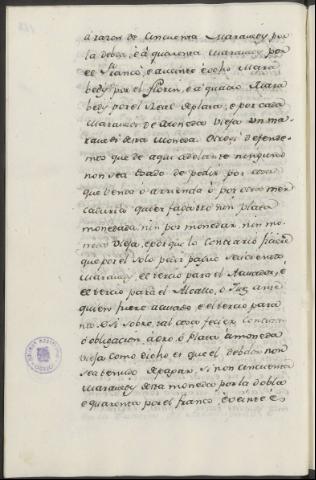 a razon de cincuenta Maravedy por
la dobla, è à quarenta Maravedy por
el Franco, e a veinte è ocho Mara
bedy por el florin, e à quatro Mara
bedy por el Real de plata, e por cada
Maravedi de Moneda Vieja un ma
ravedi desta Moneda. Otrosi defende
mos que de aqui adelante ninguno
non sea osado de pedir por cosa
que venda ò arrienda ò por otras mer
caduria quier fada oro nin plata
monedada, nin por monedar nin mo
neda Vieja, e el que lo contrario ficiere
que por el solo pedir pague seiscientos
Maravedy, el tercio para el Acusador, è
el tercio para el Alcalle, ò Juez ante
quien fuere acusado, e el tercio para
nos. E si sobre tal cosa ficier contrato
ò obligacion à oro, ò plata à moneda
vieja como dicho es que el debdor non
sea tenido de pagar, si non cincuenta
Maravedy desta moneda por la dobla
e quarenta por el franco, è veinte è